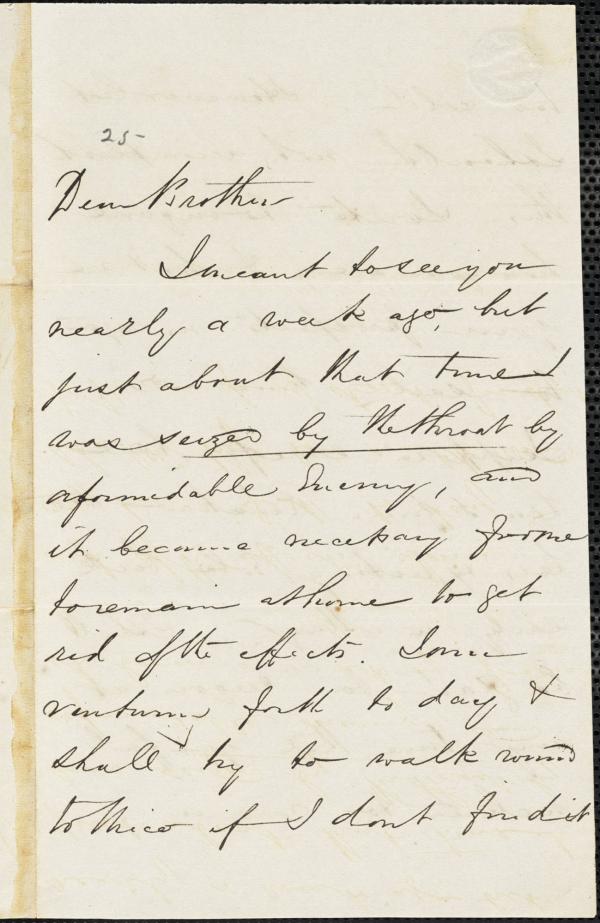 25-
Dear Brother
I meant to see you
nearly a week ago, but
just about that time I
was seized by the throat by
a formidable Enemy, and
it became necessary for me
to remain at home to get
rid of the effects. I am
venturing forth to day &
shall try to walk round
to thice if I dont find it